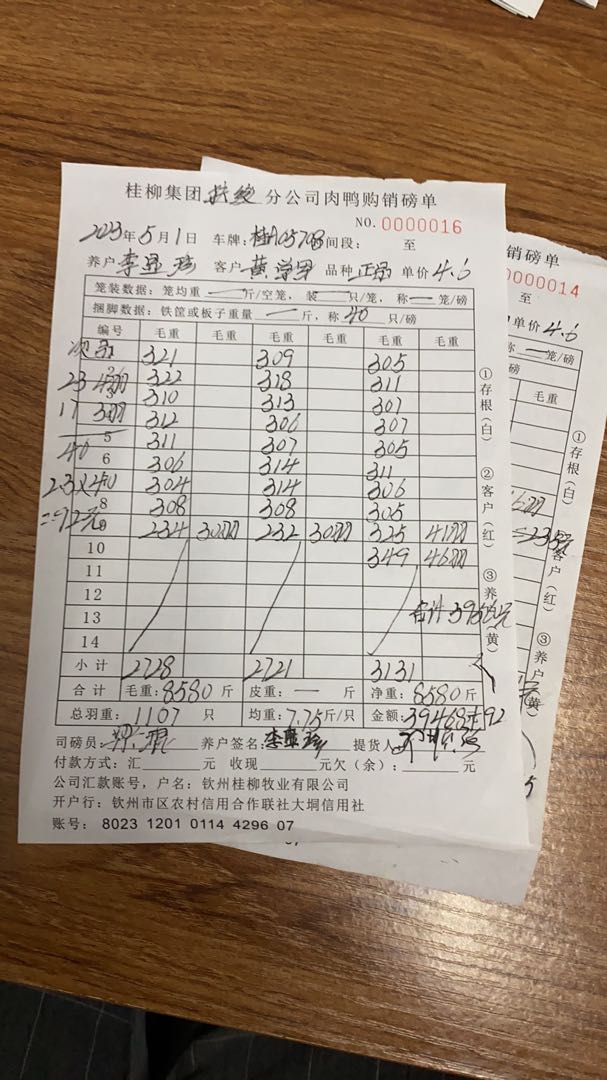 桂柳集团扶绥分公司肉鸭购销磅单
NO.0000016
2023年5月1日 车牌: 时间段: 至
养户 李显珍 客户 黄 品种 正品 单价4.6
笼装数据：笼均重 — 斤/空笼，装 — 只/笼，称 — 笼/磅
捆脚数据：铁筐或板子重量 — 斤，称 40 只/磅
编号 毛重 毛重 毛重 毛重 毛重 毛重
321 309 305
322 318 311
310 313 307
312 306 307
5 311 307 305
6 306 314 311
304 314 306
8 308 308 305
9 234 30羽 232 30羽 325 41羽
10 349 46羽
11
12
13
14
23 4羽
11 3羽
40
23×40
=92元
合计39560元
小计 2728 2721 3131
合计 毛重：8580斤 皮重：— 斤 净重：8580斤
总羽重：1107 只 均重：7.75斤/只 金额：39468元92
司磅员： 养户签名：李显珍 提货人：
付款方式：汇 元 收现 元欠（余）： 元
公司汇款账号，户名：钦州桂柳牧业有限公司
开户行：钦州市区农村信用合作联社大垌信用社
账号： 8023 1201 0114 4296 07
①存根（白） ②客户（红） ③养户（黄）
销磅单
0000014
至
单价4.6
称 — 笼/磅
磅
毛重
①存根（白）
客户（红）
③养户（黄）